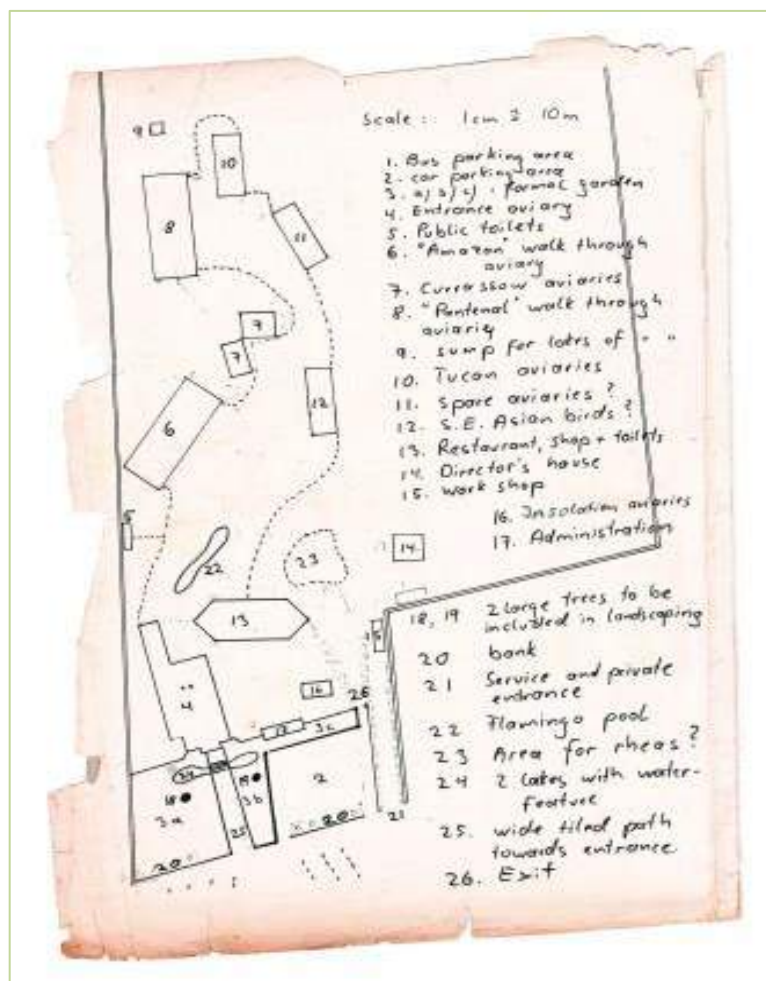 Scale : 1cm ≙ 10m
1. Bus parking area
2. car parking area
3. a) b) c) : formal garden
4. Entrance aviary
5. Public toilets
6. "Amazon" walk through
aviary
7. Currassow aviaries
8. "Pantenal" walk through
aviary
9. sump for lakes of " "
10. Tucan aviaries
11. Spare aviaries ?
12. S.E. Asian birds ?
13. Restaurant, shop + toilets
14. Director's house
15. work shop
16. Insolation aviaries
17. Administration
18, 19 2 Large trees to be
included in landscaping
20 bank
21 Service and private
entrance
22 Flamingo pool
23 Area for rheas ?
24 2 Lakes with water-
feature
25. wide tiled path
towards entrance
26. Exit
9
10
8
11
7
7
12
6
5
22
23
14
13
15
4
16
26
17
3c
24
18
19
3a
3b
2
25
20
20
21